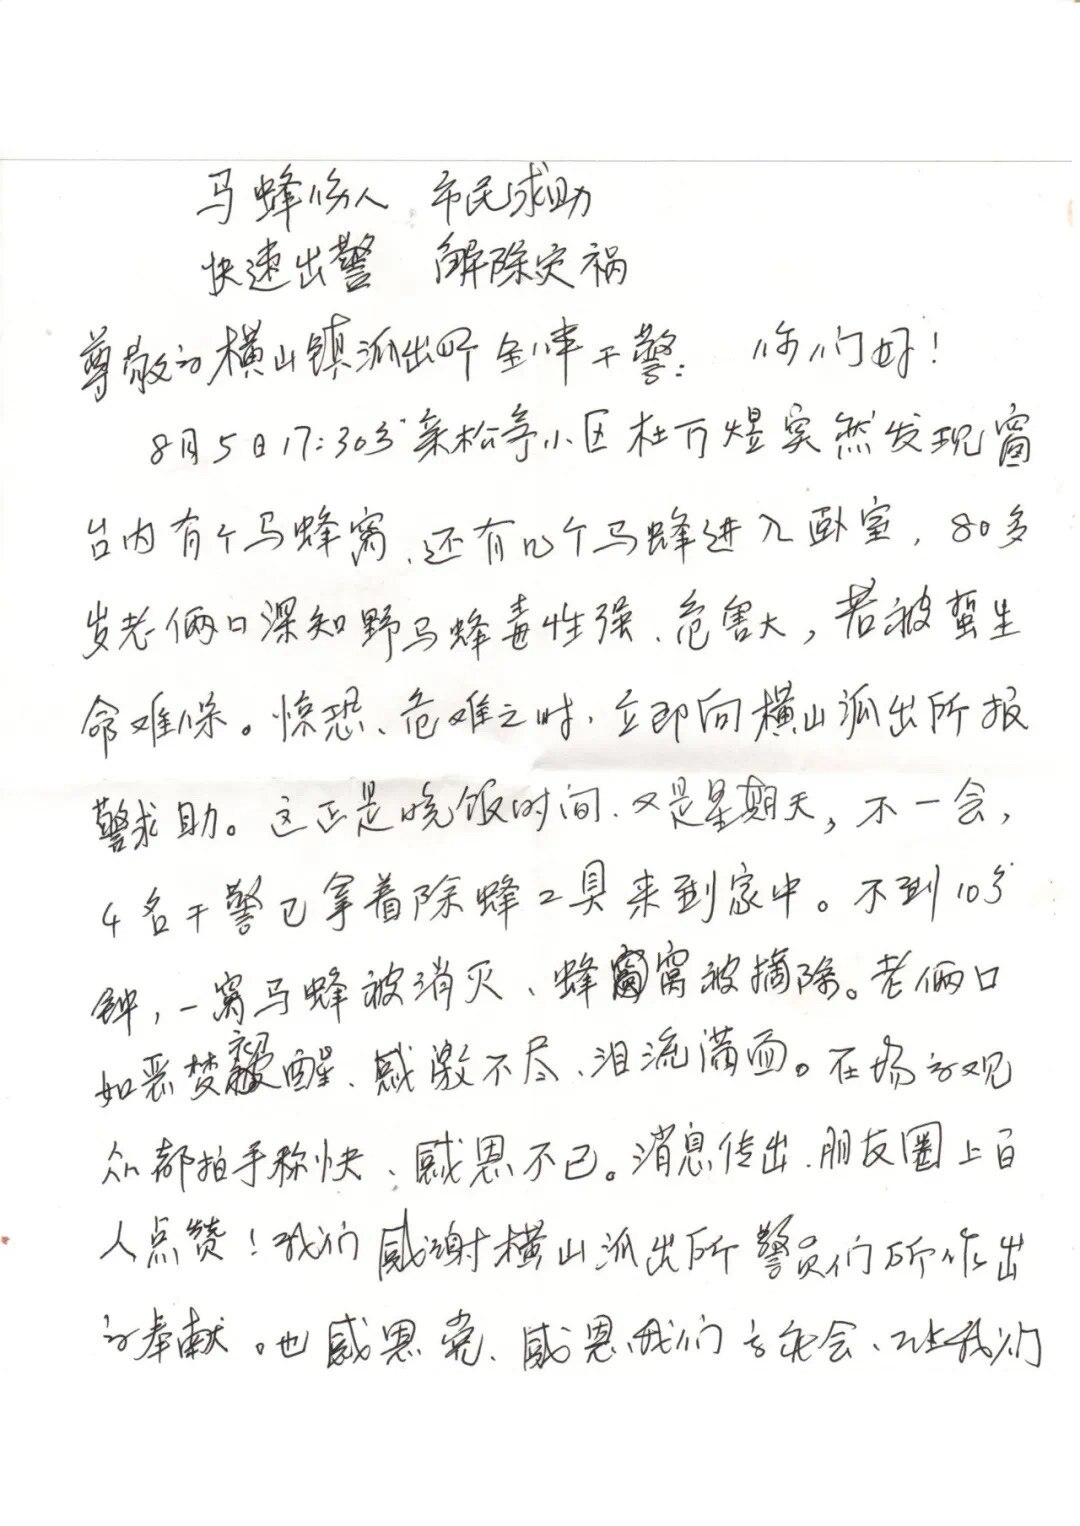 马蜂伤人 市民求助
快速出警 解除灾祸
尊敬的横山镇派出所全体干警： 你们好！
8月5日17:30分亲松亭小区杜万煜突然发现窗
台内有个马蜂窝、还有几个马蜂进入卧室，80多
岁老俩口深知野马蜂毒性强、危害大，若被蜇生
命难保。惊恐、危难之时、立即向横山派出所报
警求助。这正是晚饭时间、又是星期天，不一会，
4名干警已拿着除蜂工具来到家中。不到10分
钟，一窝马蜂被消灭、蜂窝被摘除。老俩口
如恶梦被醒、感激不尽、泪流满面。在场的观
众都拍手称快、感恩不已。消息传出、朋友圈上百
人点赞！我们感谢横山派出所警员们所作出
的奉献。也感恩党、感恩我们的社会、让我们